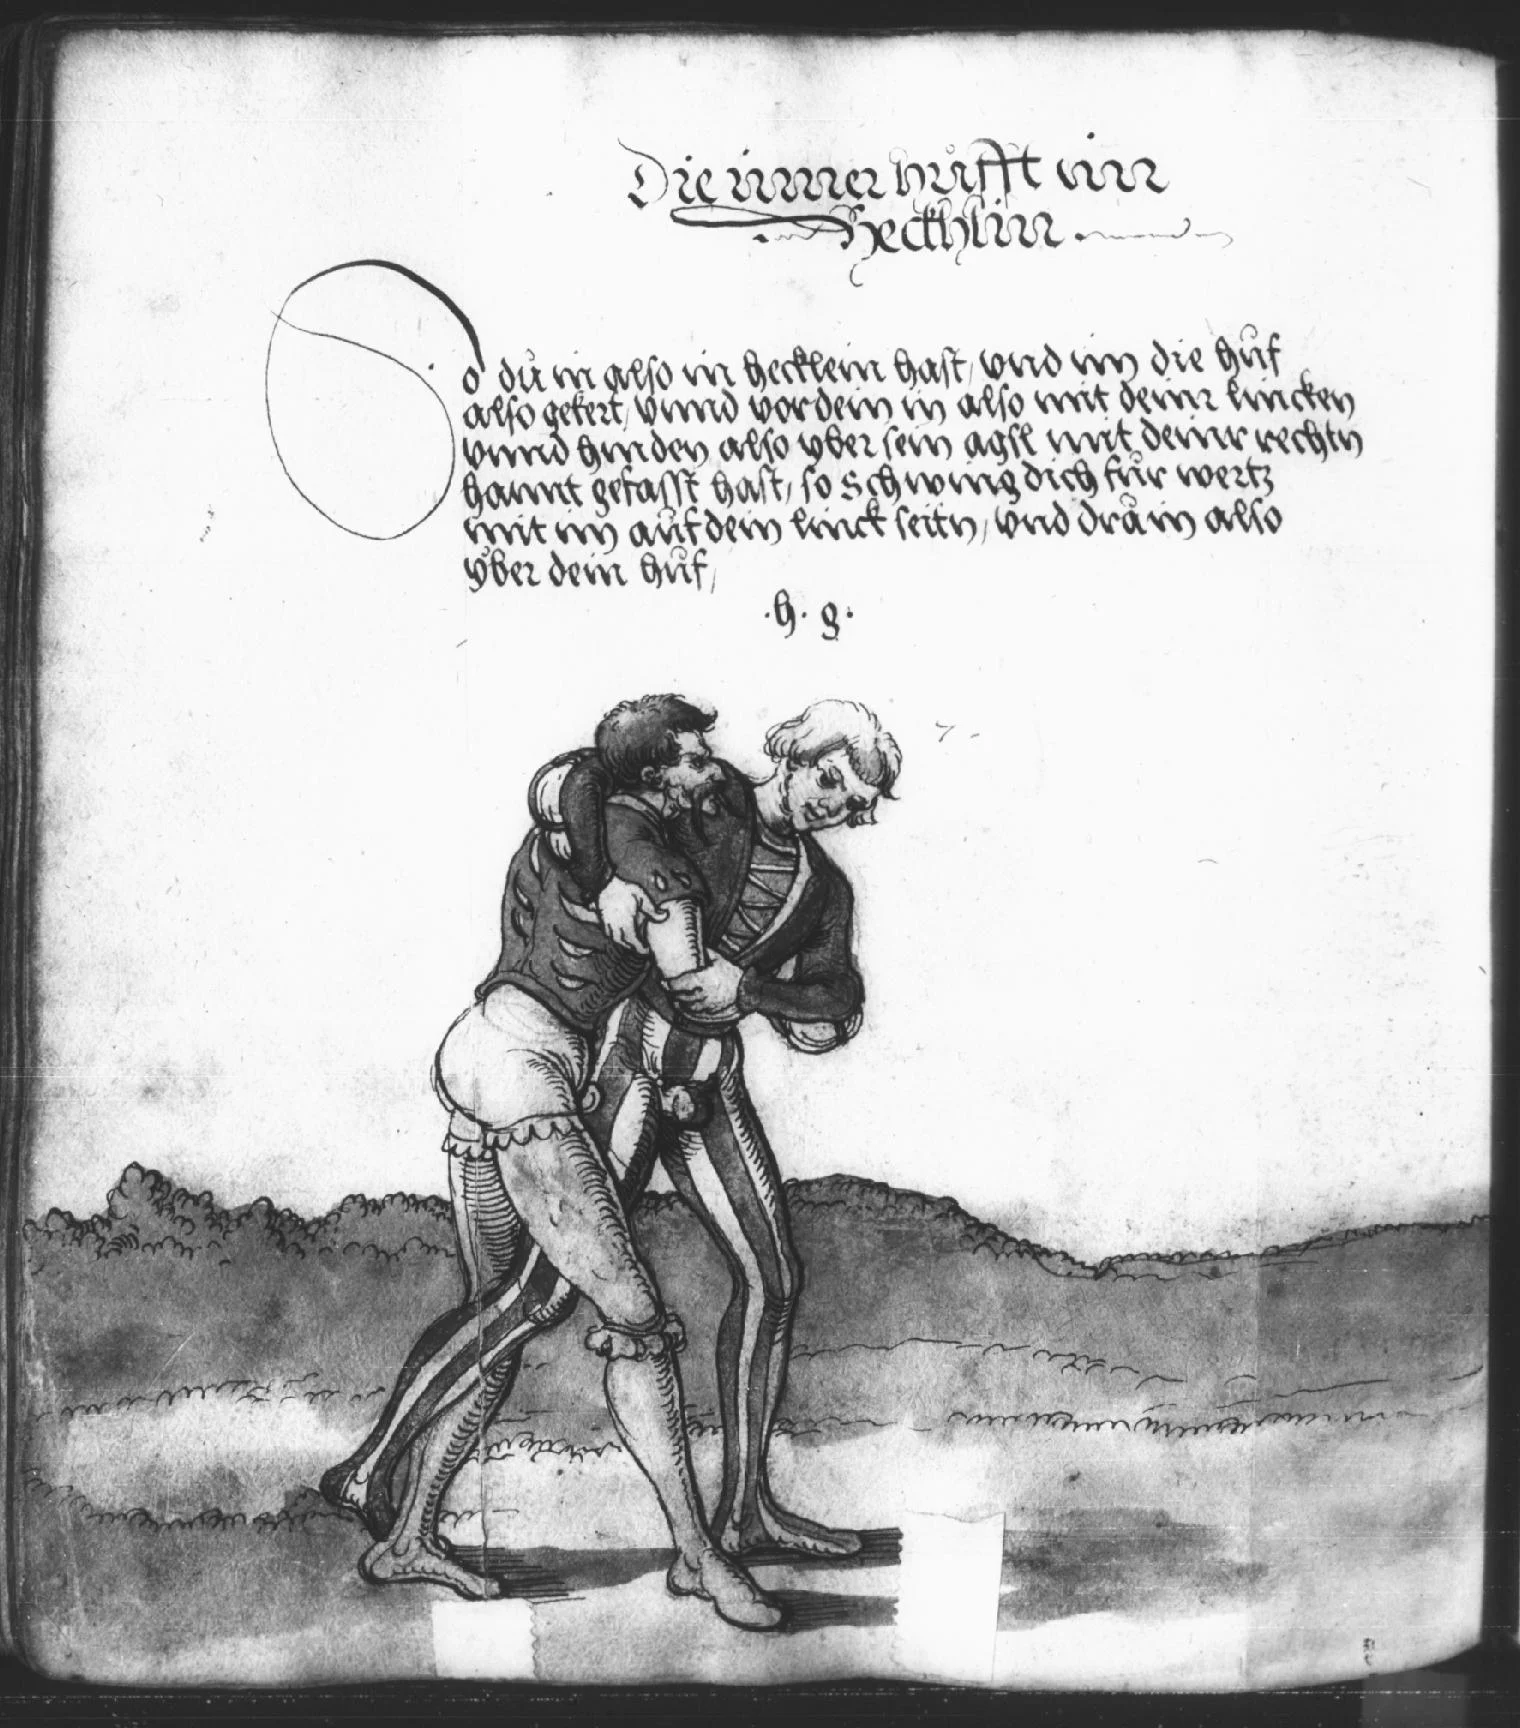 Die inner hůfft im
Heckhlin
So dů in also im hecklein hast, vnd im die hůf
also gekert, vnnd vorden in also mit deinr lincken
vnnd hinden also vber sein agsl mit deinr rechtn
hannt gefasst hast, so schwing dich fůr wertz
mit im aůf dein linck seitn, vnd dra in also
vber dein hůf,
.h. g.